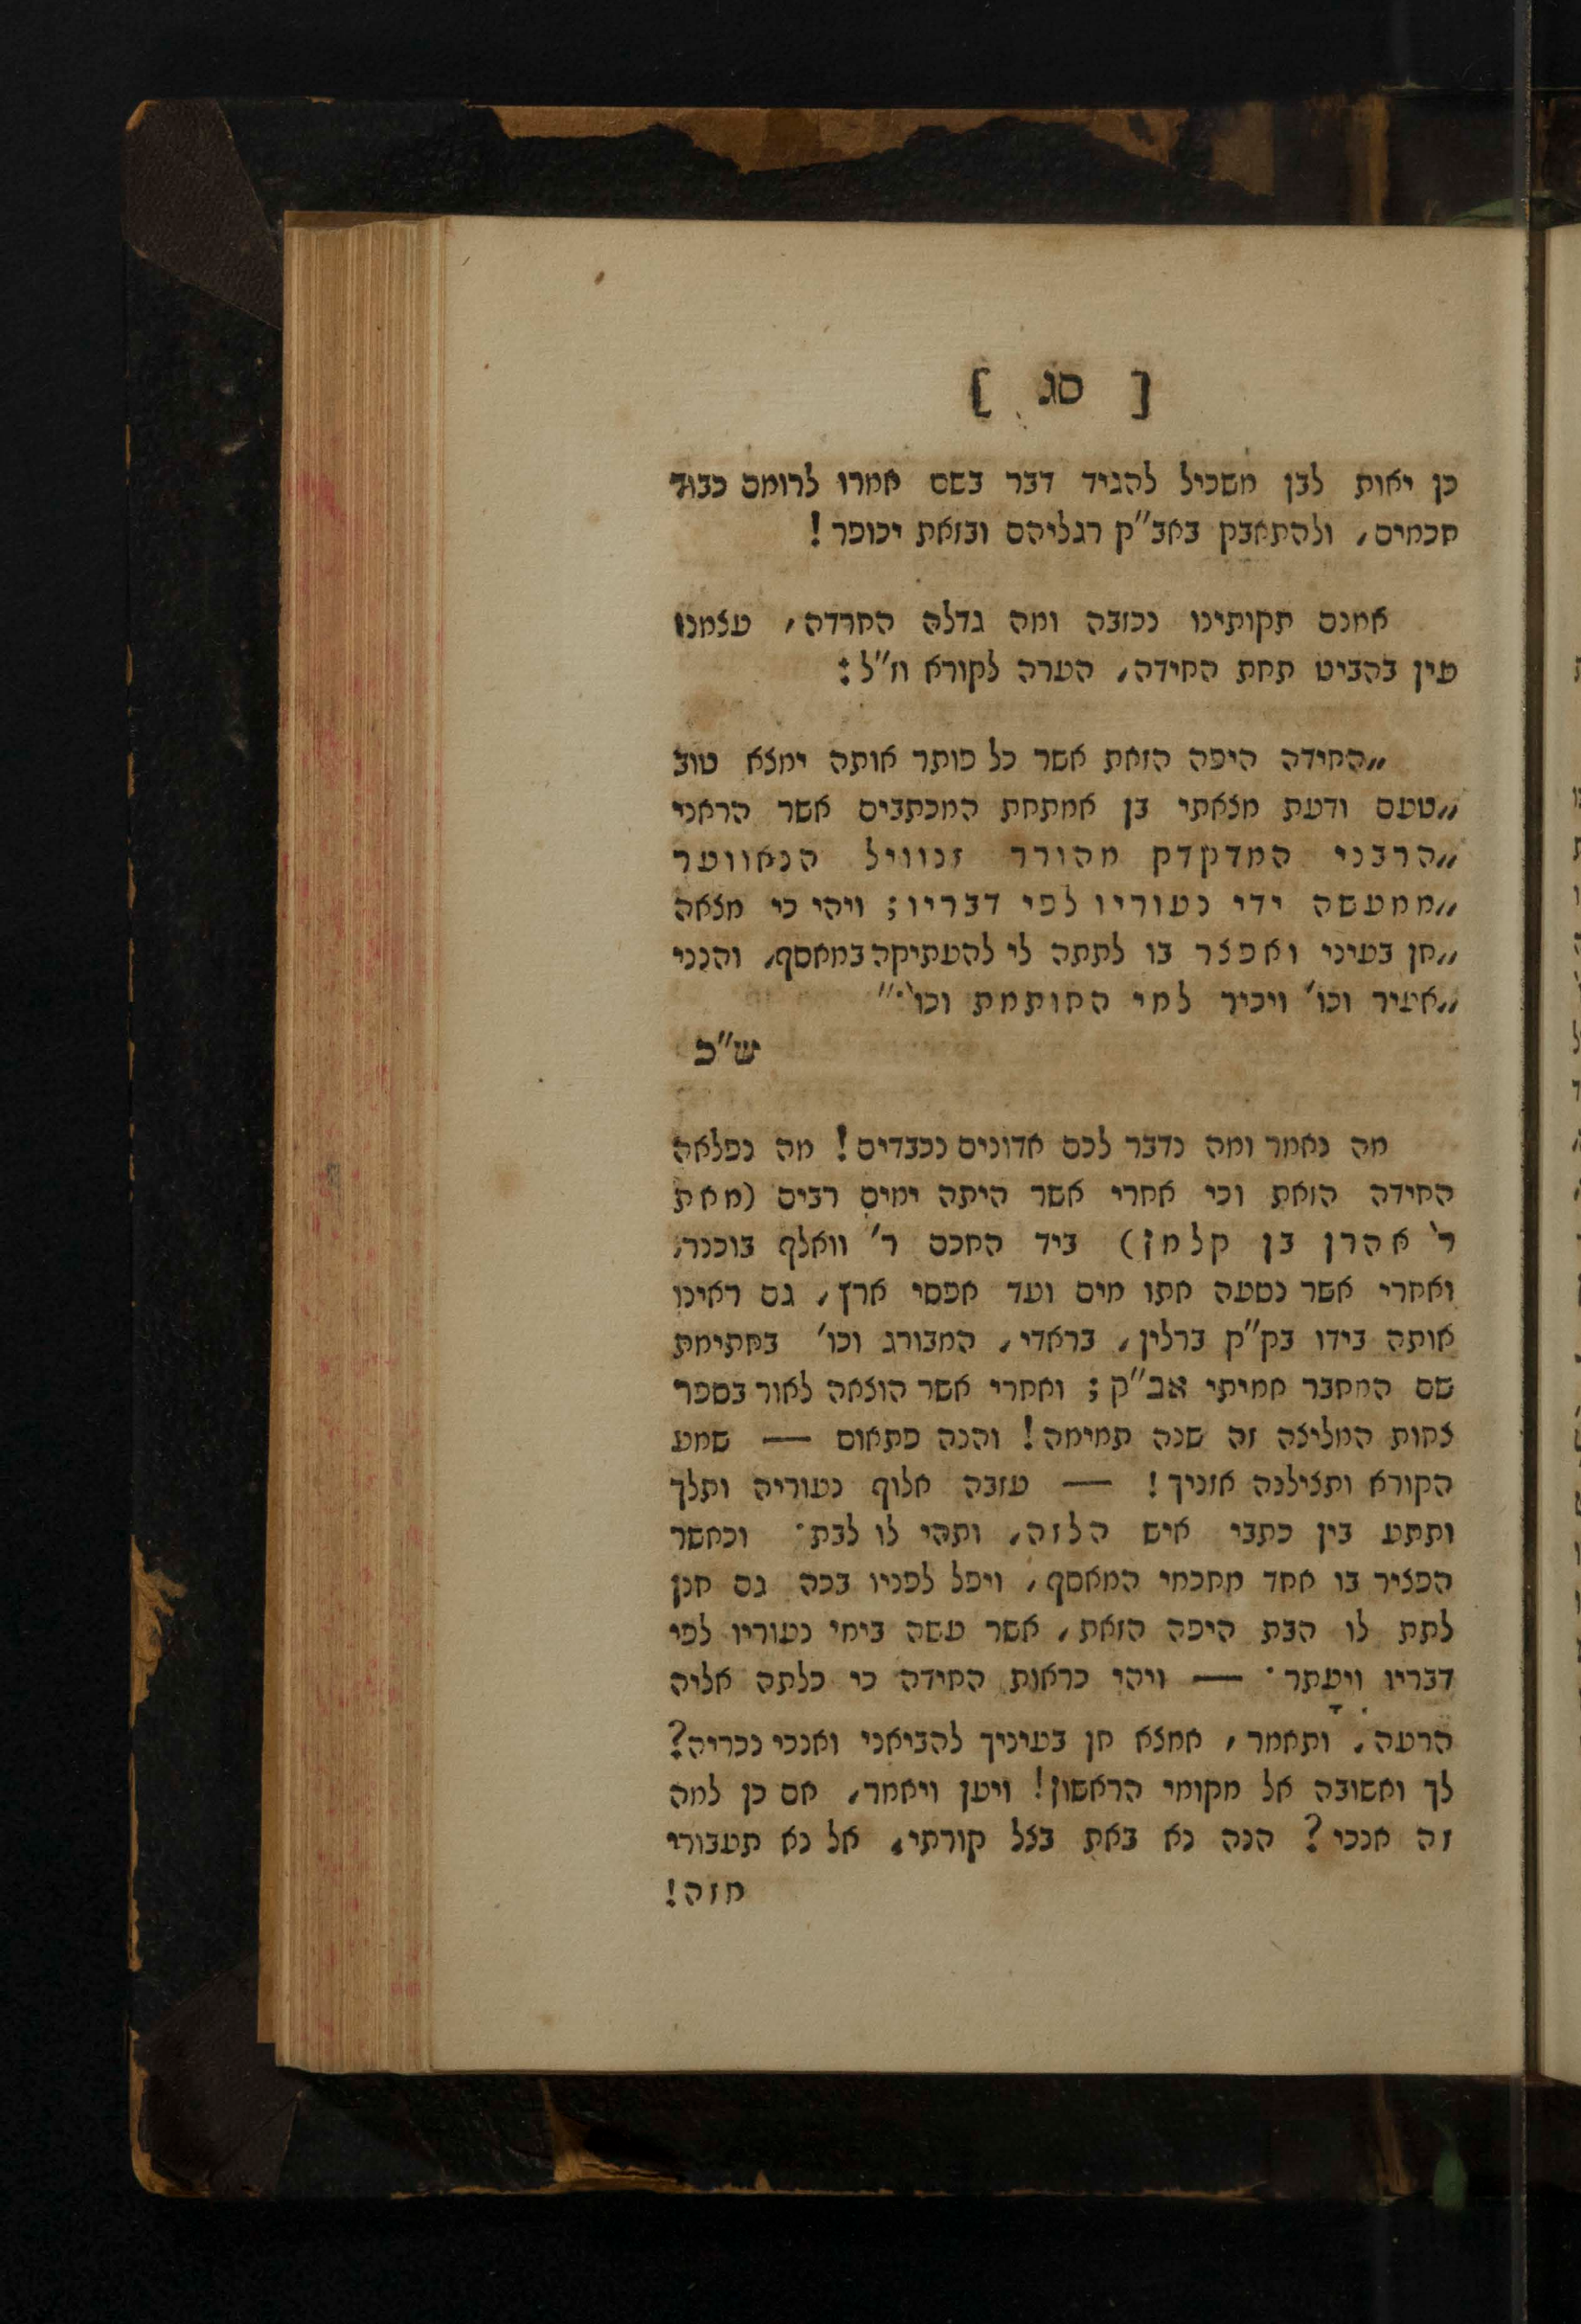 [ סג ]
כן יאות לבן משכיל להגיד דבר בשם אמרו לרומם כבוד
חכמים, ולהתאבק באב״ק רגליהם ובזאת יכופר!
אמנם תקותינו נכזבה ומה גדלה החרדה, עצמנו
עין בהביט תחת החידה, הערה לקורא וז״ל:
„החידה היפה הזאת אשר כל פותר אותה ימצא טוב
„טעם ודעת מצאתי בן אמתחת המכתבים אשר הראני
„הרבני המדקדק מהורר זנוויל הנאווער
„ממעשה ידי נעוריו לפי דבריו; ויהי כי מצאה
„חן בעיני ואפצר בו לתתה לי להעתיקה במאסף, והנני
„אעיר וכו׳ ויכיר למי החותמת וכו׳.״
ש״כ
מה נאמר ומה נדבר לכם אדונים נכבדים! מה נפלאה
החידה הזאת וכי אחרי אשר היתה ימים רבים (מאת
ר׳ אהרן בן קלמן) ביד החכם ר׳ וואלף בוכנר,
ואחרי אשר נסעה אתו מים ועד אפסי ארץ, גם ראינו
אותה בידו בק״ק ברלין, בראדי, המבורג וכו׳ בחתימת
שם המחבר אמיתי אב״ק; ואחרי אשר הוצאה לאור בספר
צחות המליצה זה שנה תמימה! והנה פתאום — שמע
הקורא ותצילנה אזניך! — עזבה אלוף נעוריה ותלך
ותתע בין כתבי איש הלזה, ותהי לו לבת. וכאשר
הפציר בו אחד מחכמי המאסף, ויפל לפניו בכה גם חנן
לתת לו הבת היפה הזאת, אשר עשה בימי נעוריו לפי
דבריו ויעתר. — ויהי כראות החידה כי כלתה אליה
הרעה, ותאמר, אמצא חן בעיניך להביאני ואנכי נכריה?
לך ואשובה אל מקומי הראשון! ויען ויאמר, אם כן למה
זה אנכי? הנה נא באת בצל קורתי, אל נא תעבורי
מזה!